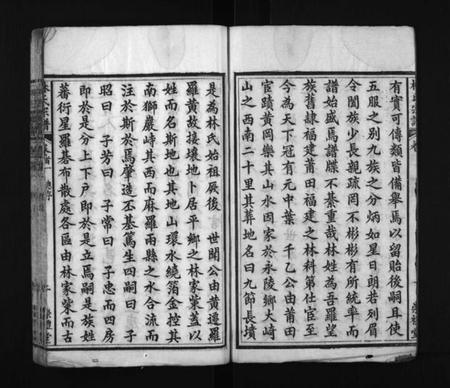 有實可傳類皆備舉焉以留貽後嗣且使
五服之別九族之分炳如星日朗若列眉
令閱族少長親疏罔不彬彬有所統率而
譜始盛焉譜牒不綦重哉林姓為吾羅望
族舊隷福建莆田福建之林科第仕宦至
今為天下冠有元中葉 千乙公由莆田
宦蹟黄岡樂其山水因家於永陵鄉大崎
山之西南二十里其葬地名曰九節長墳
是為林氏始祖厥後 世聞公由黄遷羅
羅黄故接壤地卜居平鄉之林家棠蓋以
姓而名斯地也其地山環水繞翁金控其
南獅巖峙其西而麻羅兩縣之水合流而
注於斯於焉肇造丕基篤生四嗣曰 子
昭曰 子芳曰 子常曰 子忠而四房
即於是分上下戶即於是立焉嗣是族姓
蕃衍星羅基布散處各區由林家棠而古
林氏宗譜
卷首
崇禮堂